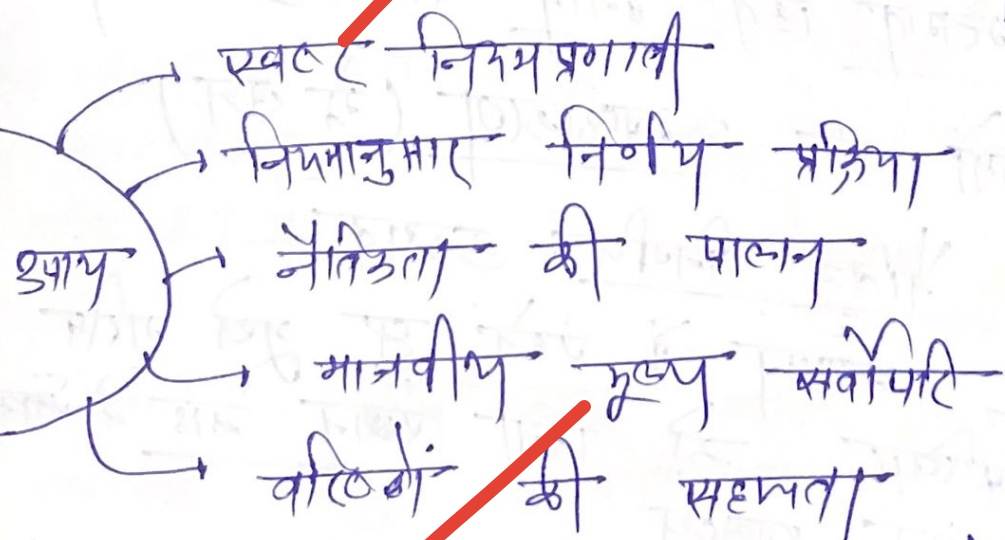 स्पष्ट नियम प्रणाली
नियमानुसार निर्णय प्रक्रिया
नैतिकता की पालन
उपाय
मानवीय मूल्य सर्वोपरि
वरिष्ठों की सहायता